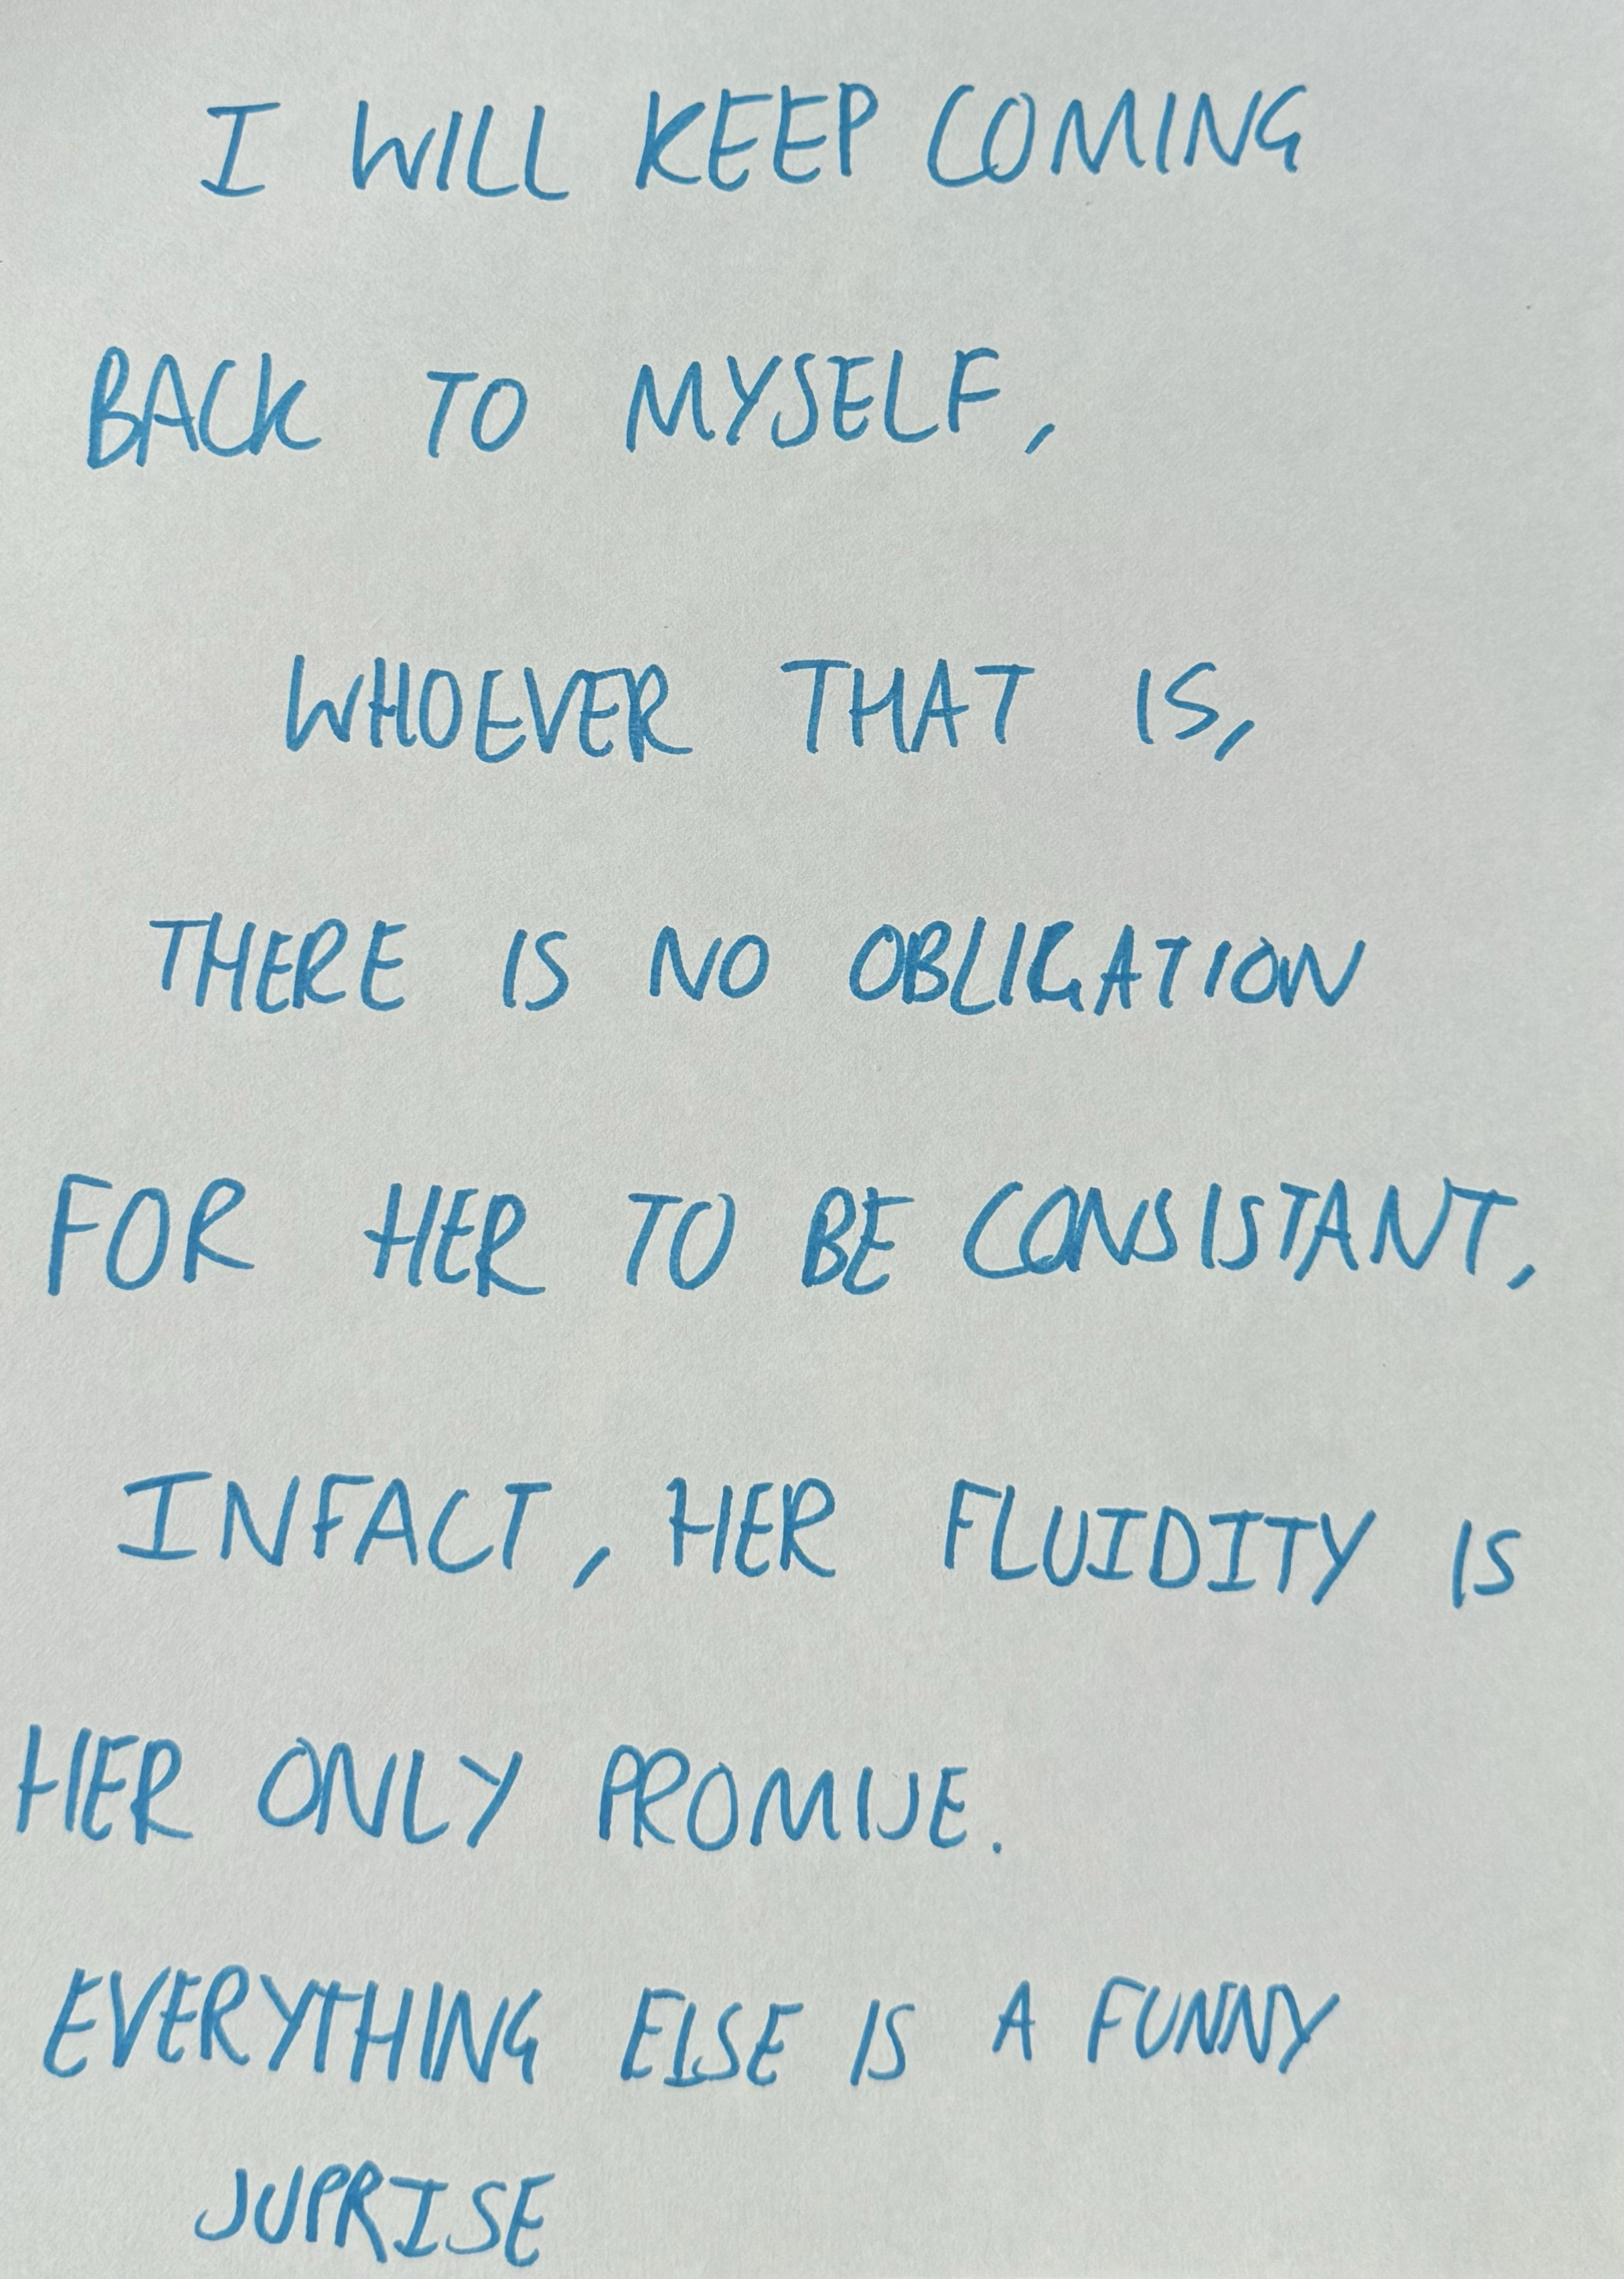 I WILL KEEP COMING
BACK TO MYSELF,
WHOEVER THAT IS,
THERE IS NO OBLIGATION
FOR HER TO BE CONSISTANT,
INFACT, HER FLUIDITY IS
HER ONLY PROMISE.
EVERYTHING ELSE IS A FUNNY
SUPRISE